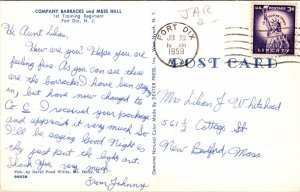 COMPANY BARRACKS and MESS HALL
1st Training Regiment
Fort Dix, N. J.
Hi Aunt Lilian,
How are you? Hope you are
feeling fine. As you can see these
are the barracks I have been stay
ing in but have now changed to
Co C. I received your package
and appreciate it very much. So
I'll be saying Good Night as
they just put the light out.
Thank you very much
From Johnny
JAR
FORT DIX
JUL 23
AM
1959
N. J.
U.S. POSTAGE 3¢
LIBERTY
POST CARD
Mrs Lilian J Whitehead
561 ½ Cottage St
New Bedford, Mass